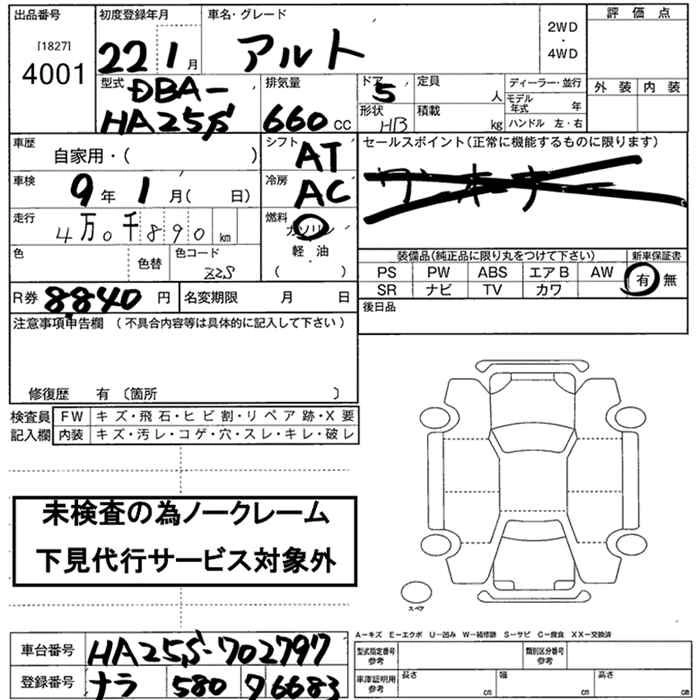 出品番号
[1827]
4001
初度登録年月
22 1月
車名・グレード
アルト
2WD
・
4WD
評価点
外装 内装
型式
DBA-
HA25S
排気量
660 CC
ドア
5
形状
HB
定員
人
積載
kg
ディーラー・並行
モデル年式 年
ハンドル 左・右
車歴
自家用・( )
シフト
AT
セールスポイント(正常に機能するものに限ります)
車検
9年 1月( 日)
冷房
AC
走行
4万0千890 km
燃料
ガソリン
軽油
( )
色
色替
色コード
22S
装備品(純正品に限り丸をつけて下さい)
PS PW ABS エアB AW
SR ナビ TV カワ
新車保証書
有 無
R券 8840 円
名変期限 月 日
後日品
注意事項申告欄 (不具合内容等は具体的に記入して下さい)
修復歴 有 〔箇所 〕
検査員記入欄
FW キズ・飛石・ヒビ割・リペア跡・X要
内装 キズ・汚レ・コゲ・穴・スレ・キレ・破レ
未検査の為ノークレーム
下見代行サービス対象外
スペア
A-キズ E-エクボ U-凹み W-補修跡 S-サビ C-腐食 XX-交換済
車台番号 HA25S-702797
登録番号 ナラ 580 ク6683
型式指定番号参考
類別区分番号
車庫証明用参考
長さ cm
幅 cm
高さ cm